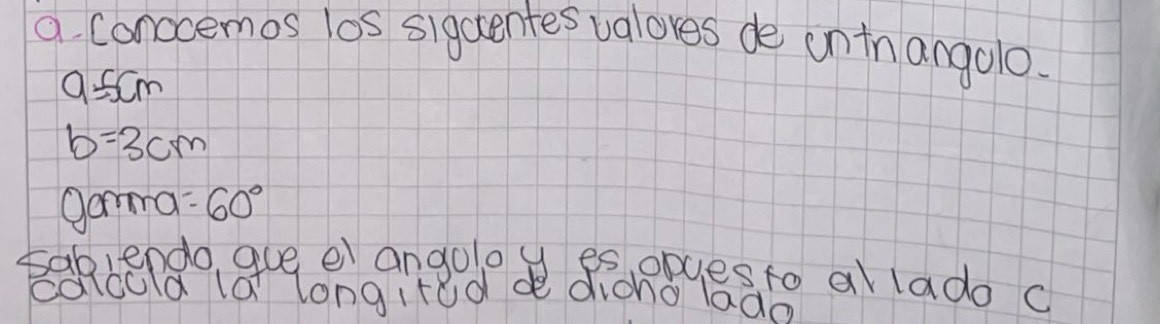 a-Conocemos los siguientes valores de un triangulo-
a=5cm
b=3cm
gamma=60°
sabiendo que el angulo y es opuesto al lado c
calcula la longitud de dicho lado